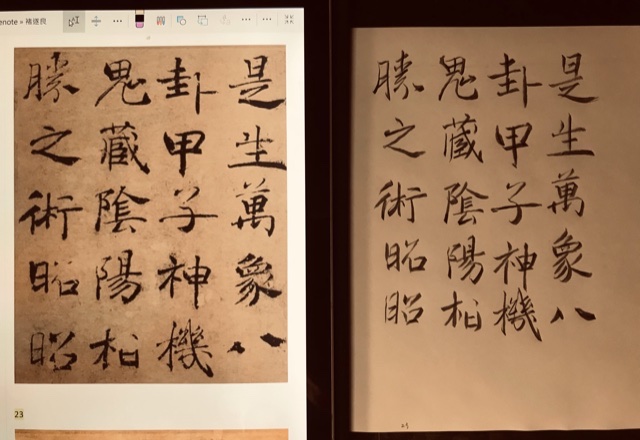 enote » 褚遂良
是生萬象八
卦甲子神機
鬼藏陰陽相
勝之術昭昭
23
是生萬象八
卦甲子神機
鬼藏陰陽相
勝之術昭昭
23